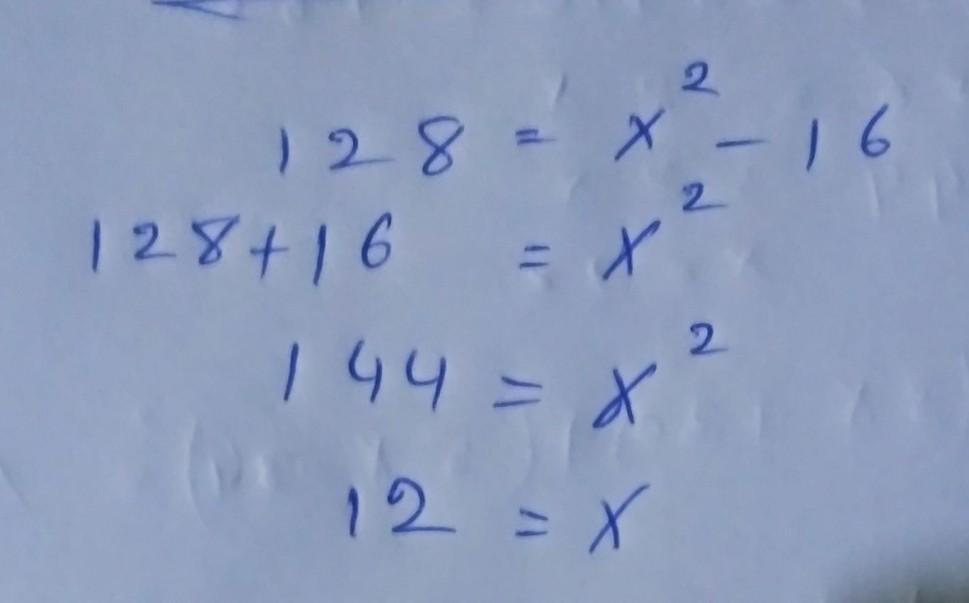 128 = x² - 16
128+16 = x²
144 = x²
12 = x